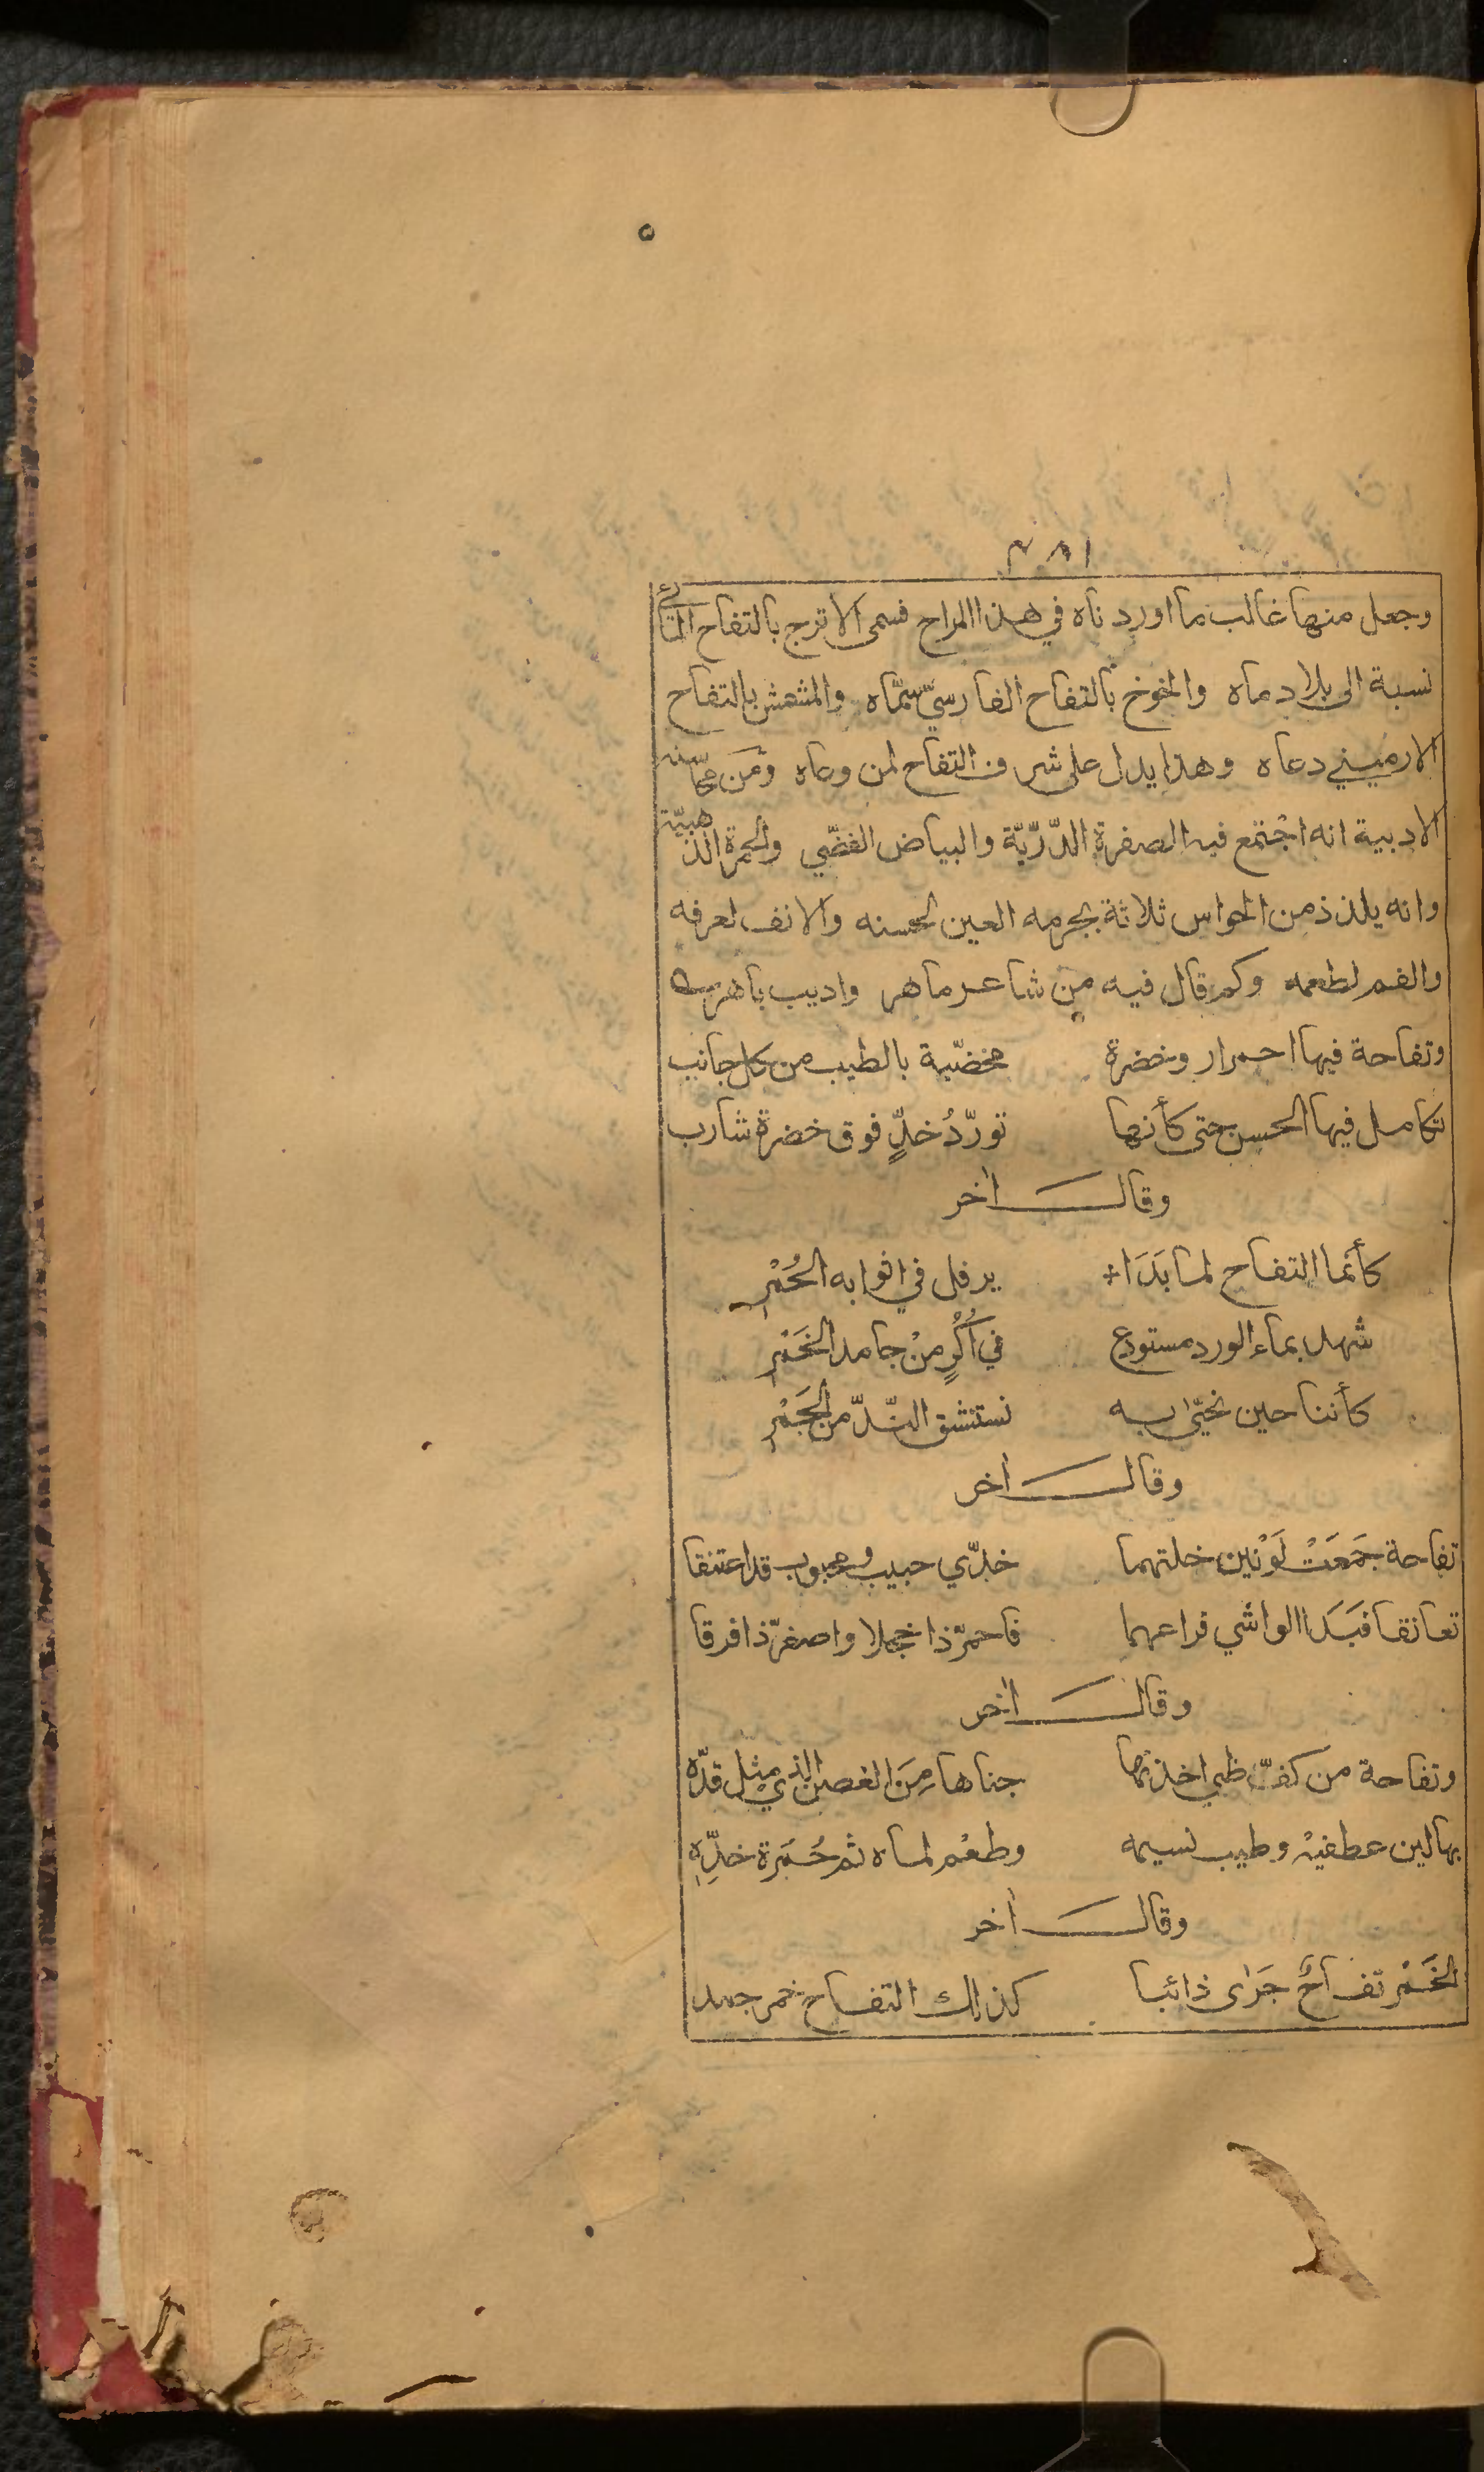 ٥
٣٨١
وجعل منها غالب ما اوردناه في هذا المراح فسمى الاترج بالتفاح المائي
نسبة الى بلاد ماه والخوخ بالتفاح الفارسيّ سمّاه والمشمش بالتفاح
الارميني دعاه وهذا يدل على شرف التفاح لمن وعاه ومَن محاسنه
الادبية انه اجْتمع فيه الصفرة الدّرّيّة والبياض الفضّي والحمرة الذهبيّة
وانه يلذذ من الحواس ثلاثة بجرمه العين لحسنه والانف لعرفه
والفم لطعمه وكم قال فيه من شاعر ماهر واديب باهر
وتفاحة فيها احمرار وخضرة مخضّبة بالطيب من كل جانب
تكامل فيها الحسن حتى كأنها تورّدُ خدٍّ فوق خضرة شارب
وقال اخر
كأنما التفاح لما بَدَا يرفل في اثوابه الحُمْر
شهد بماء الورد مستودع في أُكُرٍ منْ جامد الخَمْر
كأننا حين نحيّا به نستنشق النّدّ من الجَمْر
وقال اخر
تفاحة جَمَعَتْ لَوْنين خلتهما خدّي حبيب ومحبوب قد اعتنقا
تعانقا فبَدَا الواشي فراعهما فاحمرّ ذا خجلا واصفرّ ذا فرقا
وقال اخر
وتفاحة من كفّ ظبي اخذتها جناها مِنَ الغصن الذي مِثل قدّه
بها لين عطفيْه وطيب نسيمه وطعْم لماه ثم حُمَرة خدِّهِ
وقال اخر
الخَمْر تفاحٌ جَرَى ذائبا كذلك التفاح خمر جمد